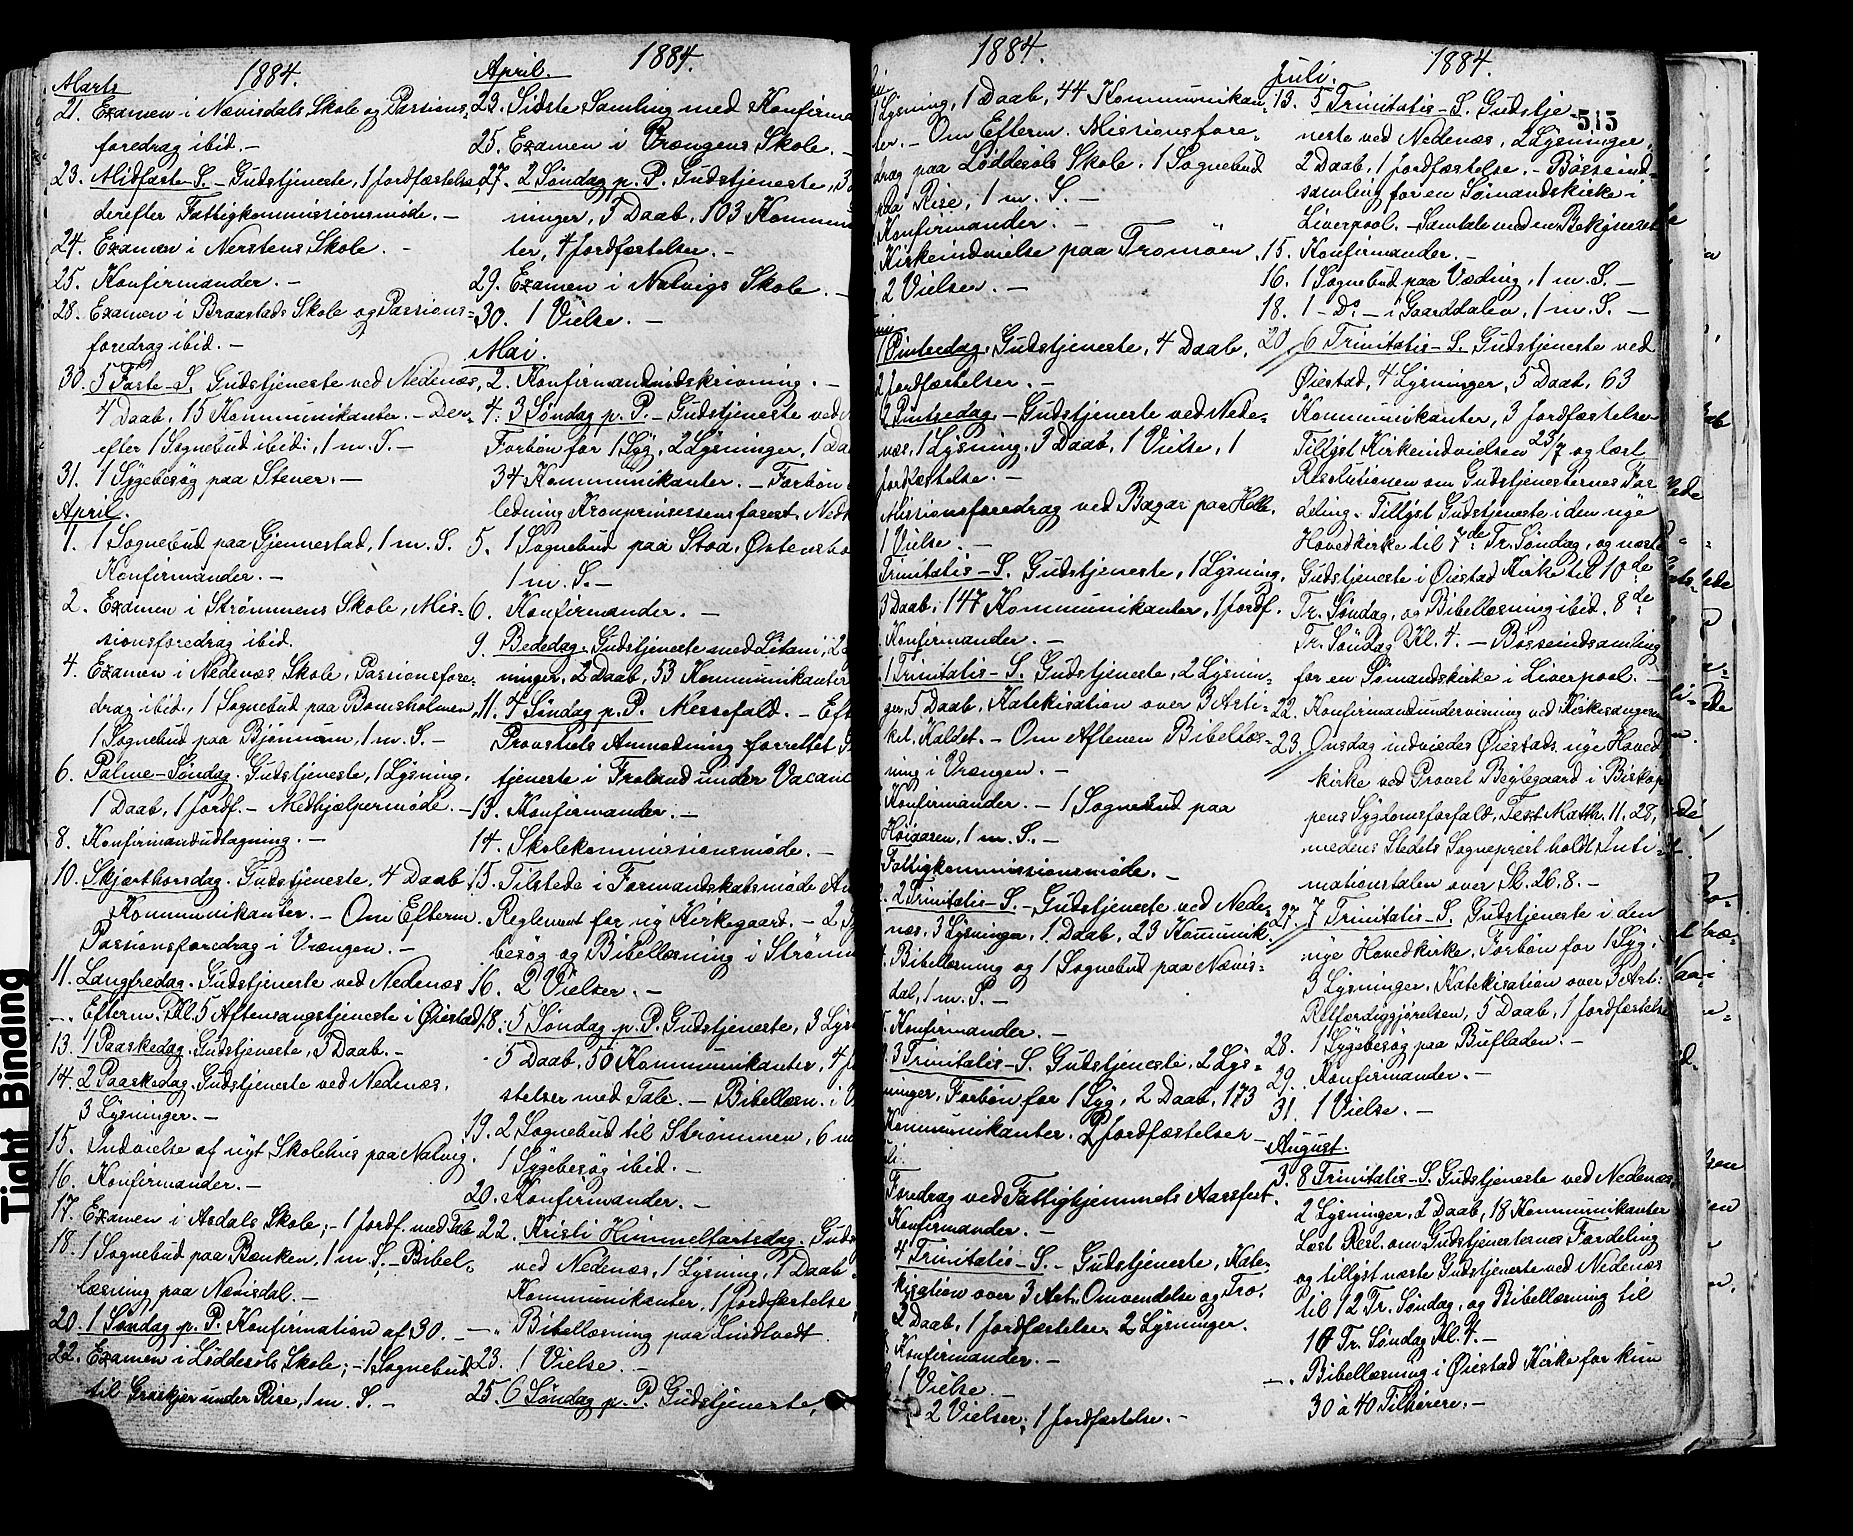 1884.
Marts
21. Examen i Nævisdals Skole og Passions-
foredrag ibid. -
23. Midfaste-S. - Gudstjeneste, 1 Jordfæstelse
derefter Fattigkommissionsmøde. -
24. Examen i Nerstens Skole. -
25. Konfirmander. -
28. Examen i Braastads Skole og Passions-
foredrag ibid. -
30. 5 Faste-S. Gudstjeneste ved Nedenæs,
4 Daab, 15 Kommunikanter. - Der-
efter 1 Sognebud ibid., 1 m. S. -
31. 1 Sygebesøg paa Stener. -
April.
1. 1 Sognebud paa Gjennestad, 1 m. S.
Konfirmander. -
2. Examen i Strømmens Skole, Mis-
sionsforedrag ibid.
4. Examen i Nedenæs Skole, Passionsfore-
drag ibid., 1 Sognebud paa Bomsholmen,
1 Sognebud paa Bjønnum, 1 m. S. -
6. Palme-Søndag. Gudstjeneste, 1 Lysning,
1 Daab, 1 Jordf. - Medhjælpermøde. -
8. Konfirmandudtagning. -
10. Skjærthorsdag. Gudstjeneste. 4 Daab
Kommunikanter. - Om Efterm.
Passionsforedrag i Vrængen. -
11. Langfredag. Gudstjeneste ved Nedenæs
-„- Efterm. Kl. 5 Aftensangstjeneste i Øiestad.
13. 1 Paaskedag. Gudstjeneste, 3 Daab. -
14. 2 Paaskedag. Gudstjeneste ved Nedenæs,
3 Lysninger. -
15. Indvielse af nyt Skolehus paa Natvig.
16. Konfirmander. -
17. Examen i Asdals Skole; - 1 Jordf. med Tale
18. 1 Sognebud paa Bænken, 1 m. S. - Bibel-
læsning paa Nævisdal. -
20. 1 Søndag p. P. Konfirmation af 30. -
22. Examen i Løddesøls Skole; - 1 Sognebud
til Graskjær under Rise, 1 m. S. -
1884.
April.
23. Sidste Samling med Konfirma
25. Examen i Vrængens Skole. -
27. 2 Søndag p. P. Gudstjeneste, 3
ninger, 5 Daab, 103 Kommun
ter, 4 Jordfæstelser. -
29. Examen i Natvigs Skole. -
30. 1 Vielse. -
Mai.
2. Konfirmandindskrivning. -
4. 3 Søndag p. P. - Gudstjeneste ved
Forbøn for 1 Syg, 2 Lysninger, 1 Da
34 Kommunikanter. - Forbøn
ledning Kronprinsessens forest. Nedk
5. 1 Sognebud paa Stoa, Østensbo
1 m. S. -
6. Konfirmander. -
9. Bededag. Gudstjeneste med Litani, 2
ninger, 2 Daab, 53 Kommunikanter
11. 4 Søndag p. P. Messefald. - Eft
Provstiets Anmodning forrettet
tjeneste i Froland under Vacanc
13. Konfirmander. -
14. Skolekommissionsmøde. -
15. Tilstede i Formandskabsmøde An
Reglement for ny Kirkegaard. - 2 Sy
besøg og Bibellæsning i Strømm
16. 2 Vielser. -
18. 5 Søndag p. P. Gudstjeneste, 3 Lys
5 Daab, 50 Kommunikanter, 4 J
stelser med Tale. - Bibellæsn. i
19. 2 Sognebud til Strømmen, 6 m
1 Sygebesøg ibid. -
20. Konfirmander. -
22. Kristi Himmelfartsdag. Guds
ved Nedenæs, 1 Lysning, 1 Daab
Kommunikanter, 1 Jordfæstelse
-„- Bibellæsning paa Lindtvedt.
23. 1 Vielse. -
25. 6 Søndag p. P. Gudstjeneste,
1884.
1 Lysning, 1 Daab, 44 Kommunikan-
ter. - Om Efterm. Missionsfore-
drag paa Løddesøls Skole. 1 Sognebud
paa Rise, 1 m. S. -
Konfirmander. -
Kirkeindvielse paa Tromøen.
2 Vielser. -
1 Pintsedag. Gudstjeneste, 4 Daab,
2 Jordfæstelser. -
2 Pintsedag. - Gudstjeneste ved Nede-
næs, 1 Lysning, 3 Daab, 1 Vielse, 1
Jordfæstelse. -
Missionsforedrag ved Bazar paa Helle.
1 Vielse. -
Trinitatis-S. Gudstjeneste, 1 Lysning,
3 Daab, 147 Kommunikanter, 1 Jordf.
Konfirmander. -
1 Trinitatis-S. Gudstjeneste, 2 Lysnin-
ger, 5 Daab, Katekisation over 3 Arti-
kel, Kaldet. - Om Aftenen Bibellæs-
ning i Vrængen. -
Konfirmander. - 1 Sognebud paa
Høiaasen, 1 m. S. -
Fattigkommissionsmøde. -
2 Trinitatis-S. - Gudstjeneste ved Nede-
næs, 3 Lysninger, 1 Daab, 23 Kommunik.
Bibellæsning og 1 Sognebud paa Nævis-
dal, 1 m. S. -
Konfirmander. -
3 Trinitatis-S. Gudstjeneste, 2 Lys-
ninger, Forbøn for 1 Syg, 2 Daab, 173
Kommunikanter. 2 Jordfæstelser -
Foredrag ved Fattighjemmets Aarsfest.
Konfirmander. -
4 Trinitatis-S. - Gudstjeneste, Kate-
kisation over 3 Art. Omvendelse og Tro,
2 Daab, 1 Jordfæstelse, 2 Lysninger.
Konfirmander. -
1 Vielse. -
2 Vielser, 1 Jordfæstelse. -
1884.
515
Juli.
13. 5 Trinitatis-S. Gudstje-
neste ved Nedenæs, 2 Lysninger,
2 Daab, 1 Jordfæstelse. - Bøsseind-
samling for en Sømandskirke i
Liverpool. - Samtale med en Bekymret
15. Konfirmander. -
16. 1 Sognebud paa Væding, 1 m. S. -
18. 1 - Do - i Gaarddalen, 1 m. S. -
20. 6 Trinitatis-S. Gudstjeneste ved
Øiestad, 4 Lysninger, 5 Daab, 63
Kommunikanter, 3 Jordfæstelser
Tillyst Kirkeindvielsen 23/7 og læst
Resolutionen om Gudstjenesternes For
deling. Tillyst Gudstjeneste i den nye
Hovedkirke til 7de Tr. Søndag, og næste
Gudstjeneste i Øiestad Kirke til 10de
Tr. Søndag, og Bibellæsning ibid. 8de
Tr. Søndag Kl. 4. - Bøsseindsamling
for en Sømandskirke i Liverpool. -
22. Konfirmandundervisning ved Kirkesangeren
23. Onsdag indviedes Øiestads nye Hoved
kirke ved Provst Bøylegaard i Bisko
pens Sygdomsforfald, Text Matth. 11. 28,
medens Stedets Sogneprest holdt Inti-
mationstalen over Sl. 26. 8. -
27. 7 Trinitatis-S. Gudstjeneste i den
nye Hovedkirke, Forbøn for 1 Syg,
3 Lysninger, Katekisation over 3 Art.
Retfærdiggjørelsen, 5 Daab, 1 Jordfæstelse
28. 1 Sygebesøg paa Bufladen. -
29. Konfirmander. -
31. 1 Vielse. -
August.
3. 8 Trinitatis-S. Gudstjeneste ved Nedenæs,
2 Lysninger, 2 Daab, 18 Kommunikanter
Læst Resl. om Gudstjenesternes Fordeling
og tillyst næste Gudstjeneste ved Nedenæs
til 12 Tr. Søndag, og Bibellæsning til
10 Tr. Søndag Kl. 4. -
-„- Bibellæsning i Øiestad Kirke for kun
30 à 40 Tilhørere. -
Tight Binding